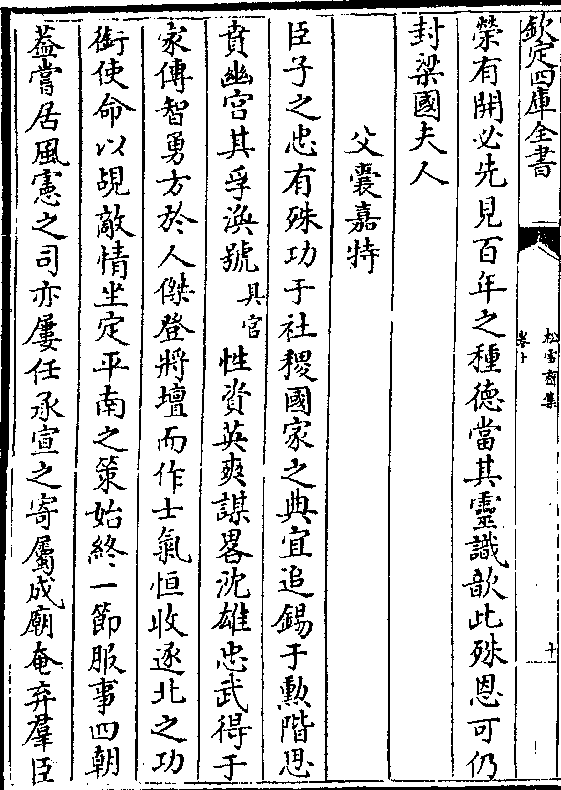 欽定四庫全書
松雪齋集
卷十
十
榮有開必先見百年之種德當其靈識歆此殊恩可仍
封梁國夫人
父囊嘉特
臣子之忠有殊功于社稷國家之典宜追錫于勲階思
賁幽宫其孚渙號具官性資英爽謀畧沈雄忠武得于
家傳智勇方於人傑登將壇而作士氣恒收逐北之功
銜使命以覘敵情坐定平南之策始終一節服事四朝
葢嘗居風憲之司亦屢任承宣之寄屬成廟奄弃羣臣